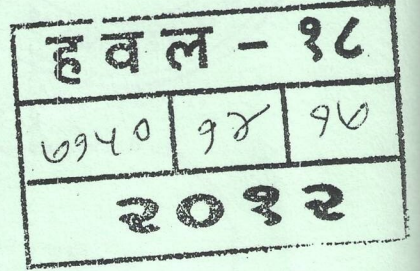 हवल - १८
७१५० १४ १७
२०१२